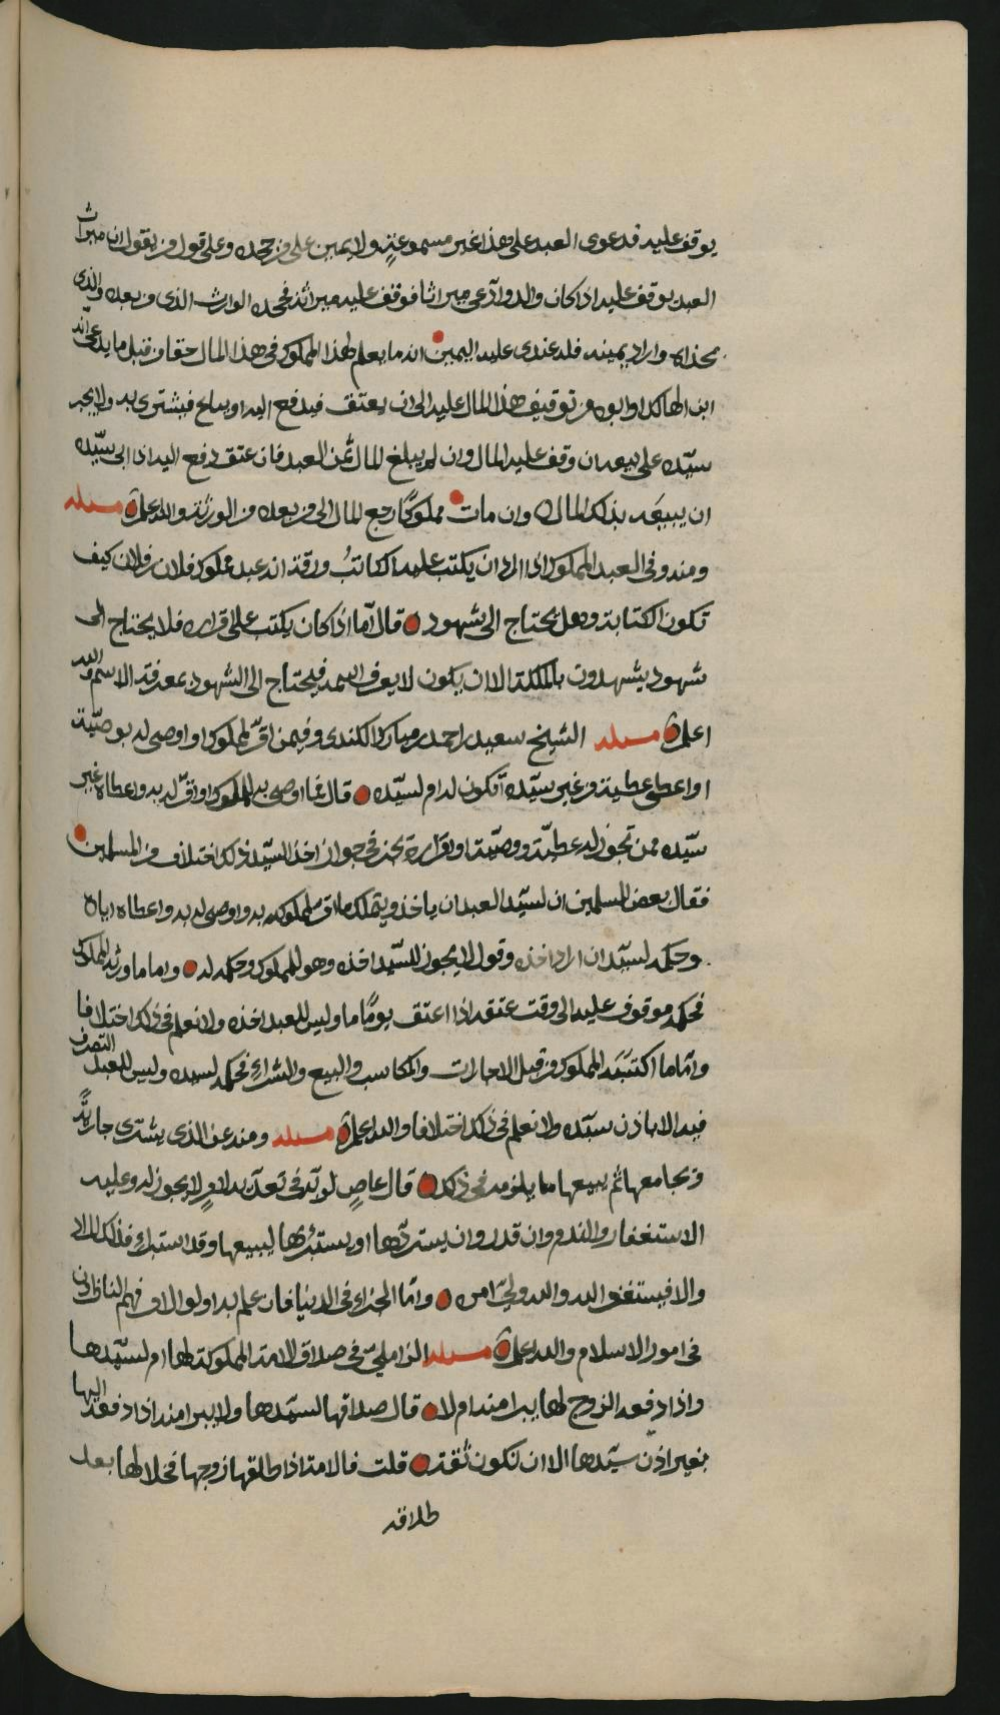 يوقف عليه فدعوى العبد على هذا غير مسموعة ولا يمين على من جحده وعلى قول من يقول ان ميراث
العبد يوقف عليه اذا كان والد وادّعى ميراثا فوقف عليه ميراثه فجحده الوارث الذي من بعده والذي
بحذاه واراد يمينه فله عندي عليه اليمين انه ما يعلم لهذا المملوك في هذا المال حقا من قبل ما يدعي انه
ابن الهالك او ابوه من توقيف هذا المال عليه الى ان يعتق فيدفع اليه او يباع فيشترى به ولا يجبر
سيّده على بيعه ان وقف عليه المال وان لم يبلغ المال ثمن العبد فان عتق دفع اليه اذا ابى سيّده
ان يبيعه بذلك المال وان مات مملوكًا رجع المال الى من بعده من الورثة والله اعلم مسئلة
ومنه وفي العبد المملوك اذا اراد ان يكتب عليه الكاتبُ ورقة انه عبد مملوك فلان بن فلان كيف
تكون الكتابة وهل يحتاج الى شهود قال امّا اذا كان يكتب على اقراره فلا يحتاج الى
شهود يشهدون بالملكة الا ان يكون لا يعرف اسمه فيحتاج الى الشهود بمعرفة الاسم والله
اعلم مسئلة الشيخ سعيد بن احمد بن مبارك الكندي وفيمن اقرّ لمملوك او اوصى له بوصيّة
او اعطى عطية من غير سيّده اتكون له ام لسيّده قال فما اوصى به للمملوك او اقرّ له به واعطاه غير
سيّده ممن تجوز له عطيّة ووصيّة او بقراره ففي جواز اخذ السيّد ذلك اختلاف من المسلمين
فقال بعض المسلمين ان لسيّد العبد ان ياخذ ويتملك ما اقر لمملوكه به واوصى له به واعطاه اياه
وحكمه لسيّده ان اراد اخذه وقول لا يجوز للسيّد اخذه وهو للمملوك وحكمه له واما ما ورثه المملوك
فحكمه موقوف عليه الى وقت عتقه اذا اعتق يومًا ما وليس للعبد اخذه ولا نعلم في ذلك اختلافا
وامّا ما اكتسَبَه المملوك من قبل الاجارات والمكاسب والبيع والشراء فحكمه لسيده وليس للعبد التصرف
فيه الا باذن سيّده ولا نعلم في ذلك اختلافا والله اعلم مسئلة ومنه عن الذي يشتري جاريةً
ويجامعها ثم يبيعها ما يلزمه في ذلك قال عاصٍ لربّه في تعدّيه لامرٍ لا يجوز له وعليه
الاستغفار والندم وان قدر وان يستردّها او يستبرئها ليبيعها وقد استبراء فذلك المراد
والا فيستغفر الله والله وليّ امره وامّا الجزاء في الدنيا فان علم به اولو الامر فهم الناظرون
في امور الاسلام والله اعلم مسئلة الزامليّ في صداق الامة المملوكة لها ام لسيّدها
واذا دفعه الزوج لها يبرا منه ام لا قال صداقها لسيّدها ولا يبرا منه اذا دفعه اليها
بغير اذن سيّدها الا ان تكون ثقة قلت فالامة اذا طلقها زوجها فخلا لها بعد
طلاقه